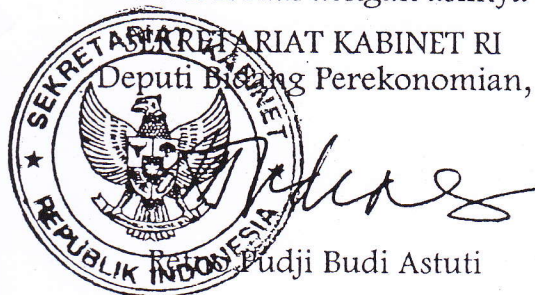 dengan aslinya
SEKRETARIAT KABINET RI
Deputi Bidang Perekonomian,
SEKRETARIAT KABINET
REPUBLIK INDONESIA
Retno Pudji Budi Astuti